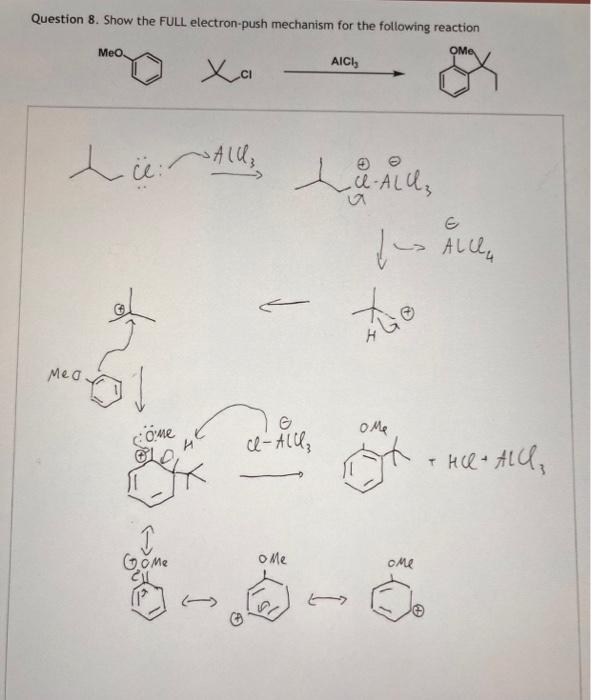 Question 8. Show the FULL electron-push mechanism for the following reaction
MeO Cl AlCl3 OMe
:C̈l: AlCl3 ⊕ ⊖ Cl-AlCl3
⊖ AlCl4
⊕ H ⊕
MeO
:ÖMe ⊕ H ⊖ Cl-AlCl3 OMe + HCl + AlCl3
⊕ OMe OMe OMe
⊕ ⊕